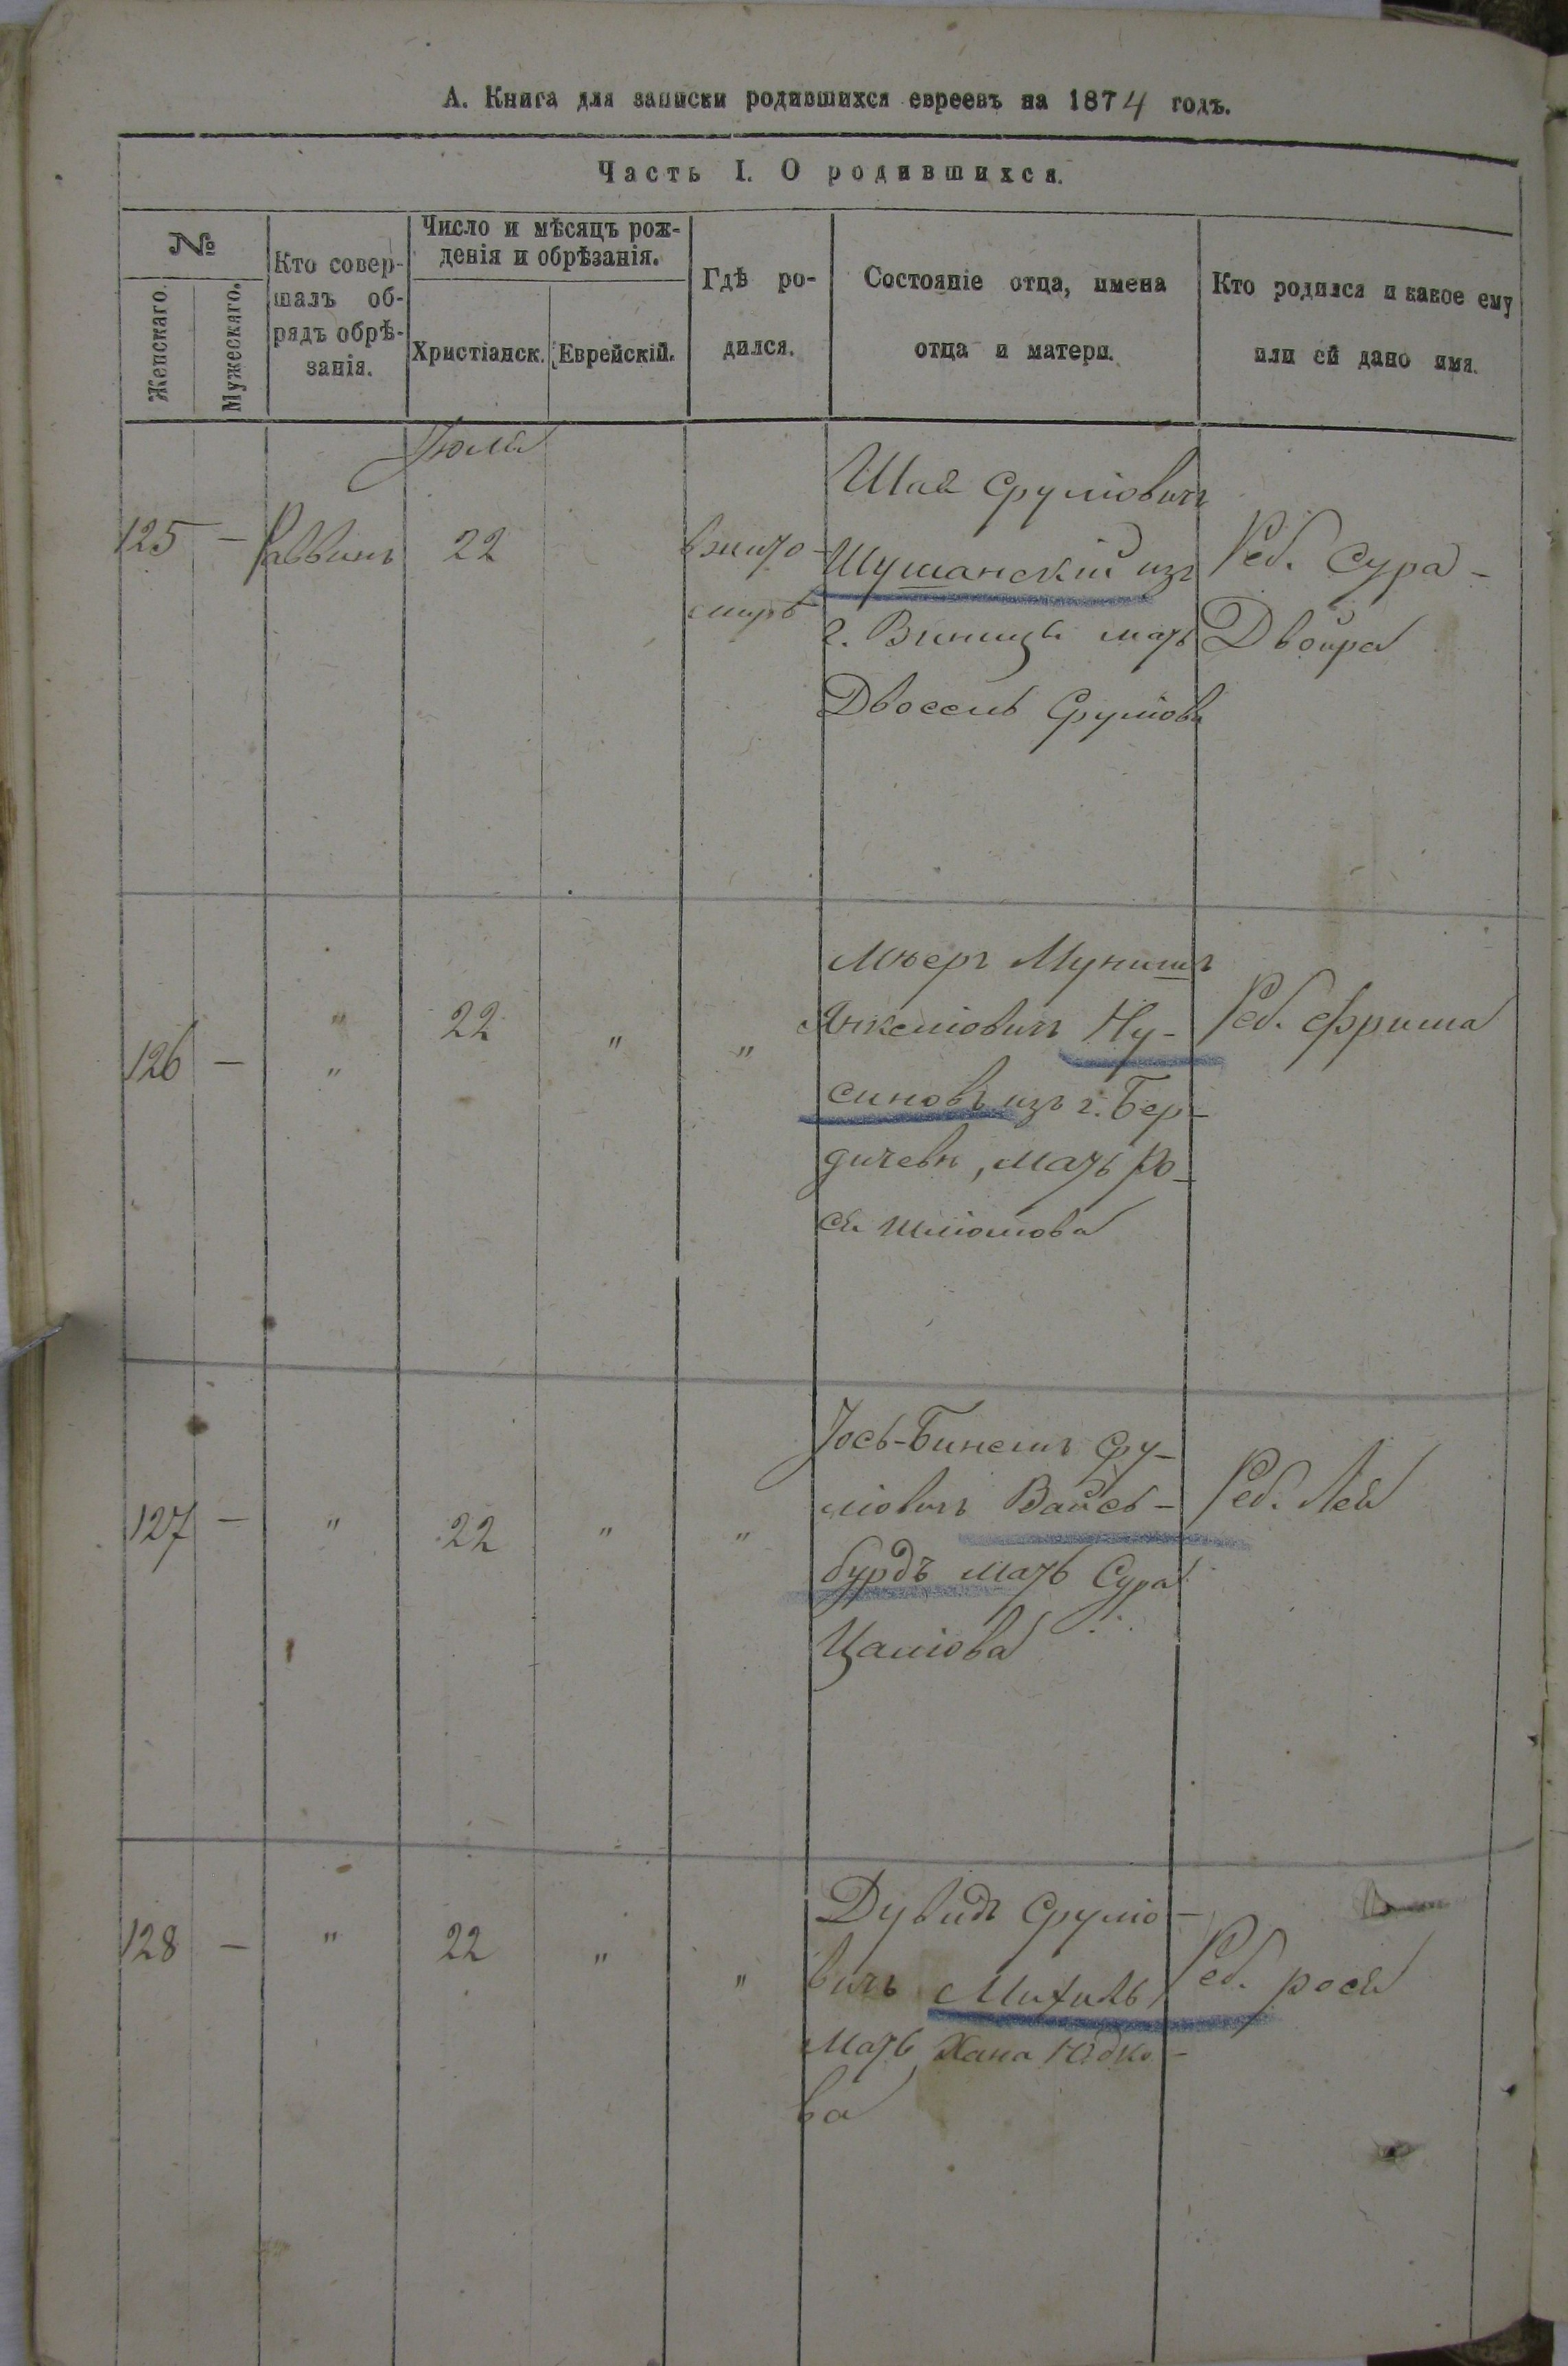 А. Книга для записки родившихся евреевъ на 1874 годъ.
Часть I. О родившихся.
№
Женскаго.
Мужескаго.
Кто совер-
шалъ об-
рядъ обрѣ-
занія.
Число и мѣсяцъ рож-
денія и обрѣзанія.
Христіанск.
Еврейскій.
Гдѣ ро-
дился.
Состояніе отца, имена
отца и матери.
Кто родился и какое ему
или ей дано имя.
Іюля
125 — Раввинъ 22
вжито-
мирѣ
Шая Сруліовичъ
Шушанскій изъ
г. Виницы мать
Двоссль Сруліова
Реб. Сура-
Двойра
126 — " " 22 " "
Мѣеръ Мунишъ
Янкеліовичъ Ну-
синовъ изъ г. Бер-
дичевн, мать Ро-
ся Шліомова
Реб. Фрима
127 — " 22 " "
Іось-Бинемъ Сру-
ліовичъ Вайсъ-
бурдъ мать Сура
Цаліова
Реб. Лея
128 — " 22 " "
Дувидъ Сруліо-
вичъ Михиль,
мать Хана Юдко-
ва
Реб. рося